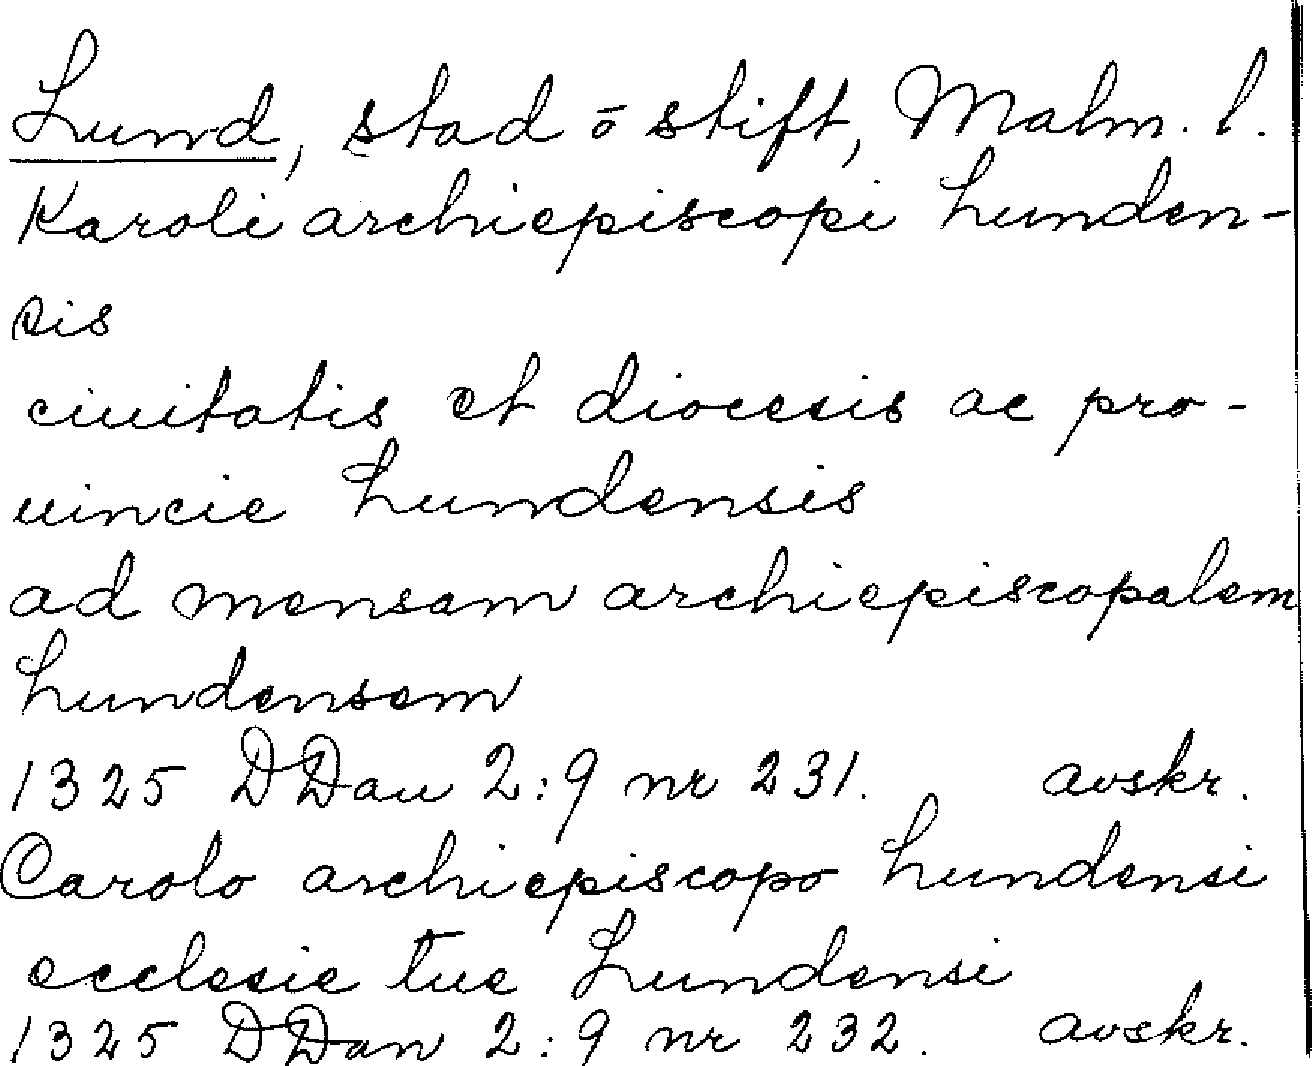 Lund, stad ō stift, Malm. l.
Karoli archiepiscopi Lunden-
sis
ciuitatis et diocesis ac pro-
uincie Lundensis
ad mensam archiepiscopalem
Lundensem
1325 DDan 2:9 nr 231. avskr.
Carolo archiepiscopo Lundensi
ecclesie tue Lundensi
1325 DDan 2:9 nr 232. avskr.